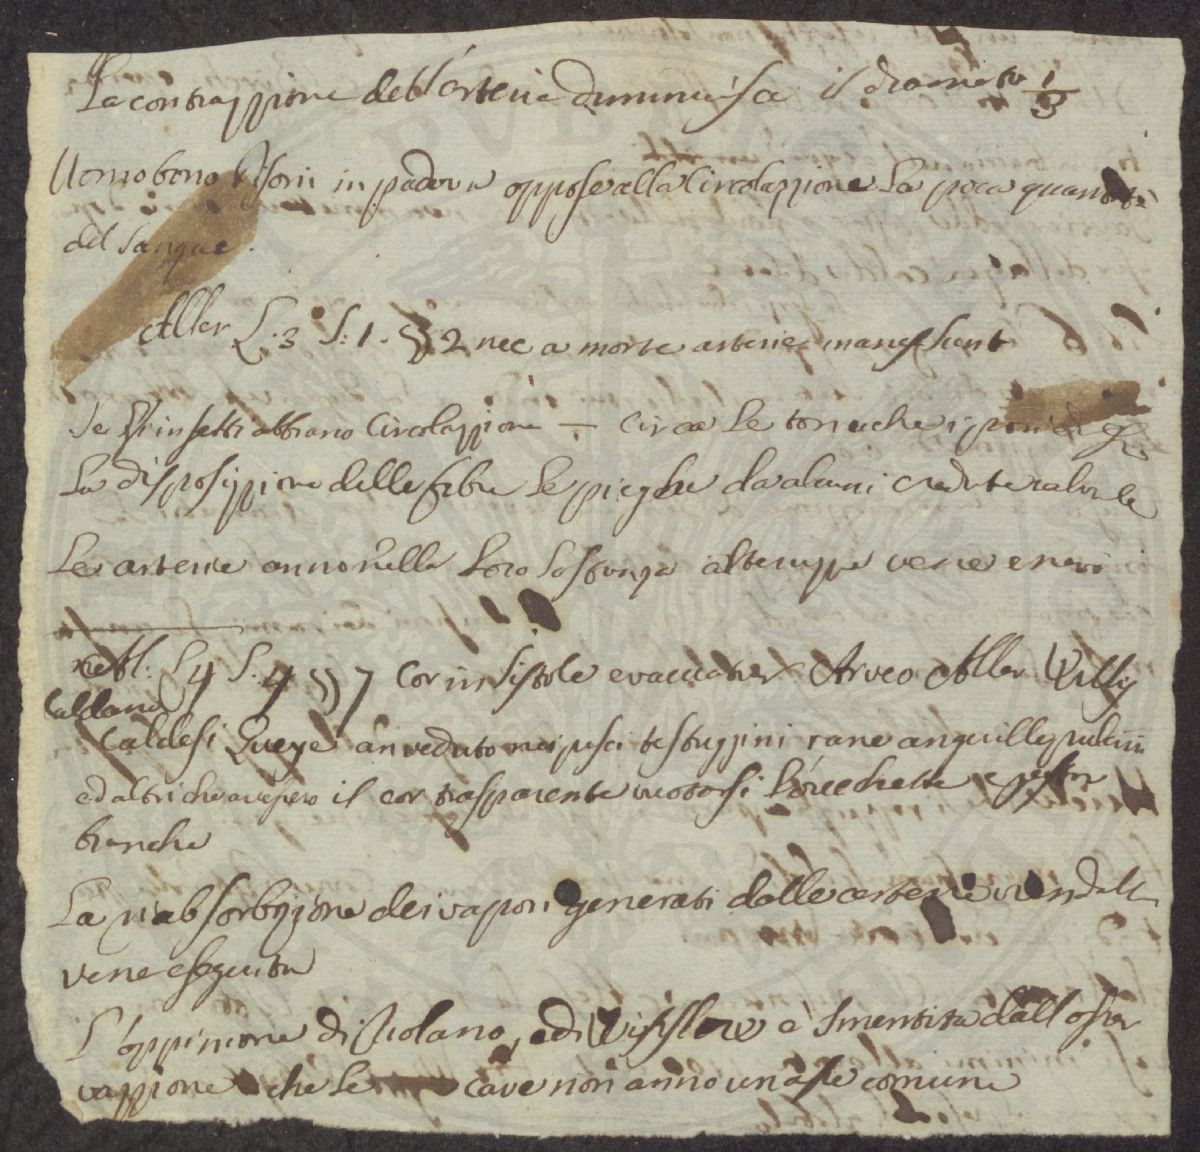 La contrazzione dell'arteria diminuisce il diametro 1/3
Uomobono Pisoni in padova oppose alla Circolazzione La poca quantità
del sangue.
Aller L. 3 S: 1. § 2 nec a morte arterie
Se insetti abbiano Circolazzione — circa Le tonache
La disposizzione delle fibre Le pieghe da alcuni credute valvole
Le arterie anno nella Loro sostanza altresi vene e nervi
L 4 S. 4 § 7 Cor in sistole Arveo Aller
Caldani
Caldesi an veduto nei pesci testuggini rane anguille pulcini
ed altri che avesero il cor trasparente
branche
La riabsorbizione dei vapori generati dalle arterie vien dalle
vene eseguita
L'oppinione di Riolano, e di é smentita dall osser
vazzione che Le cave non anno un comune